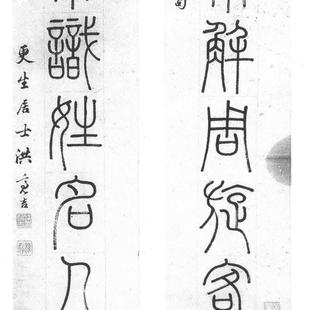 解周旋客
識姓名人
更生居士洪亮吉